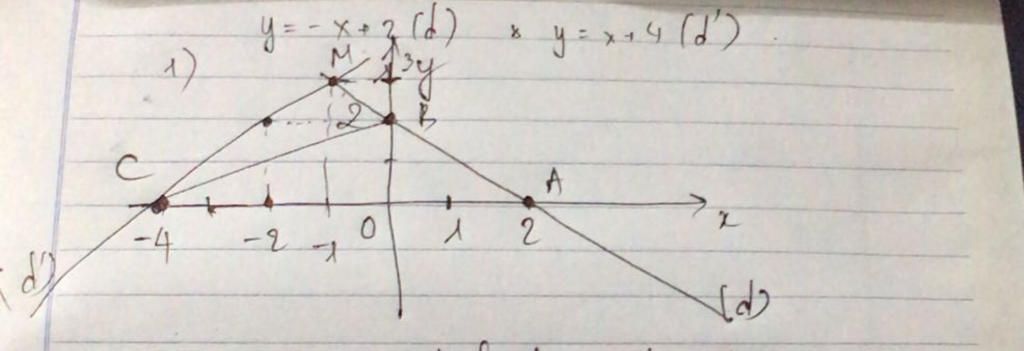 y = -x + 2 (d) * y = x + 4 (d')
1)
M 3 y
2 B
C A
-4 -2 -1 0 1 2 x
(d') (d)